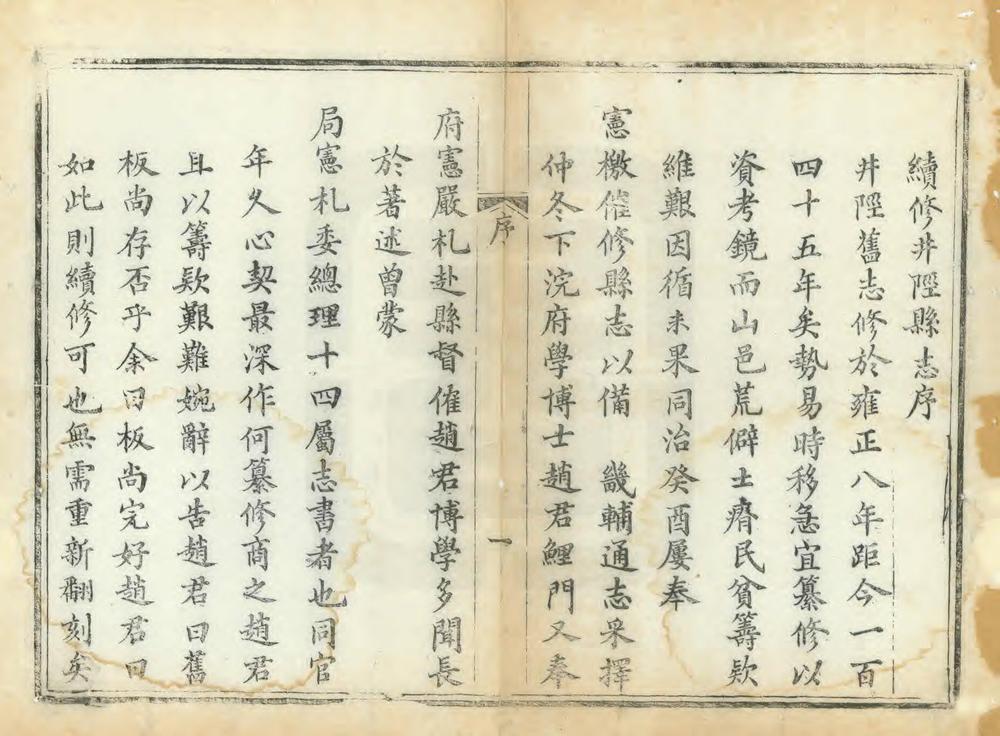 續修井陘縣志序
井陘舊志修於雍正八年距今一百
四十五年矣勢易時移急宜纂修以
資考鏡而山邑荒僻土瘠民貧籌欵
維艱因循未果同治癸酉屢奉
憲檄催修縣志以備　畿輔通志采擇
仲冬下浣府學博士趙君鯉門又奉
序
一
府憲嚴札赴縣督催趙君博學多聞長
於著述曾蒙
局憲札委總理十四屬志書者也同官
年久心契最深作何纂修商之趙君
且以籌欵艱難婉辭以告趙君曰舊
板尚存否乎余曰板尚完好趙君曰
如此則續修可也無需重新翻刻矣